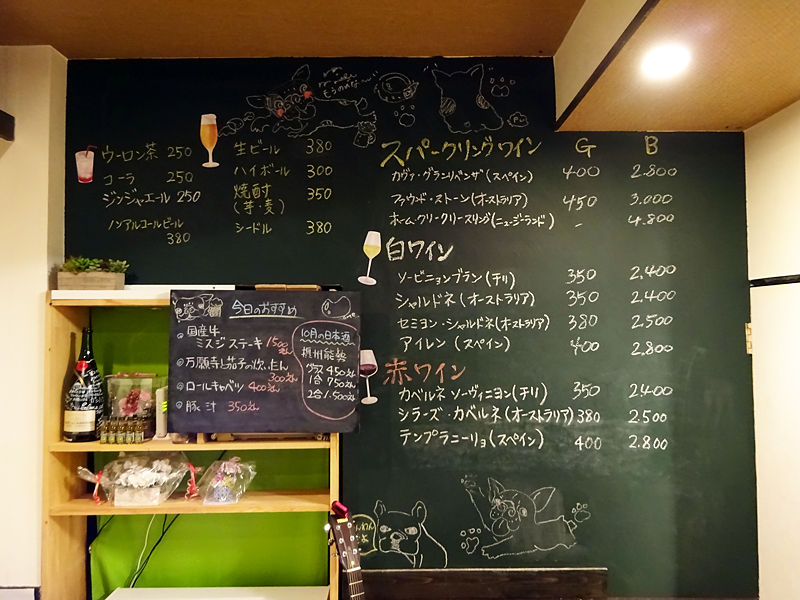 ウーロン茶 250
コーラ 250
ジンジャエール 250
ノンアルコールビール
380
生ビール 380
ハイボール 300
焼酎 350
(芋・麦)
シードル 380
スパークリングワイン G B
カヴァ・グランリベンサ(スペイン) 400 2.800
ファウンド・ストーン(オーストラリア) 450 3.000
ホームクリークリースリング(ニュージーランド) - 4.800
白ワイン
ソービニョンブラン(チリ) 350 2.400
シャルドネ(オーストラリア) 350 2.400
セミヨン・シャルドネ(オーストラリア) 380 2.500
アイレン(スペイン) 400 2.800
赤ワイン
カベルネソーヴィニヨン(チリ) 350 2.400
シラーズ・カベルネ(オーストラリア) 380 2.500
テンプラニーリョ(スペイン) 400 2.800
今日のおすすめ
国産牛
ミスジステーキ 1500えん
万願寺と茄子の炊いたん
300えん
ロールキャベツ 400えん
豚汁 350えん
10月の日本酒
摂州能勢
グラス 450えん
1合 750えん
2合 1.500えん